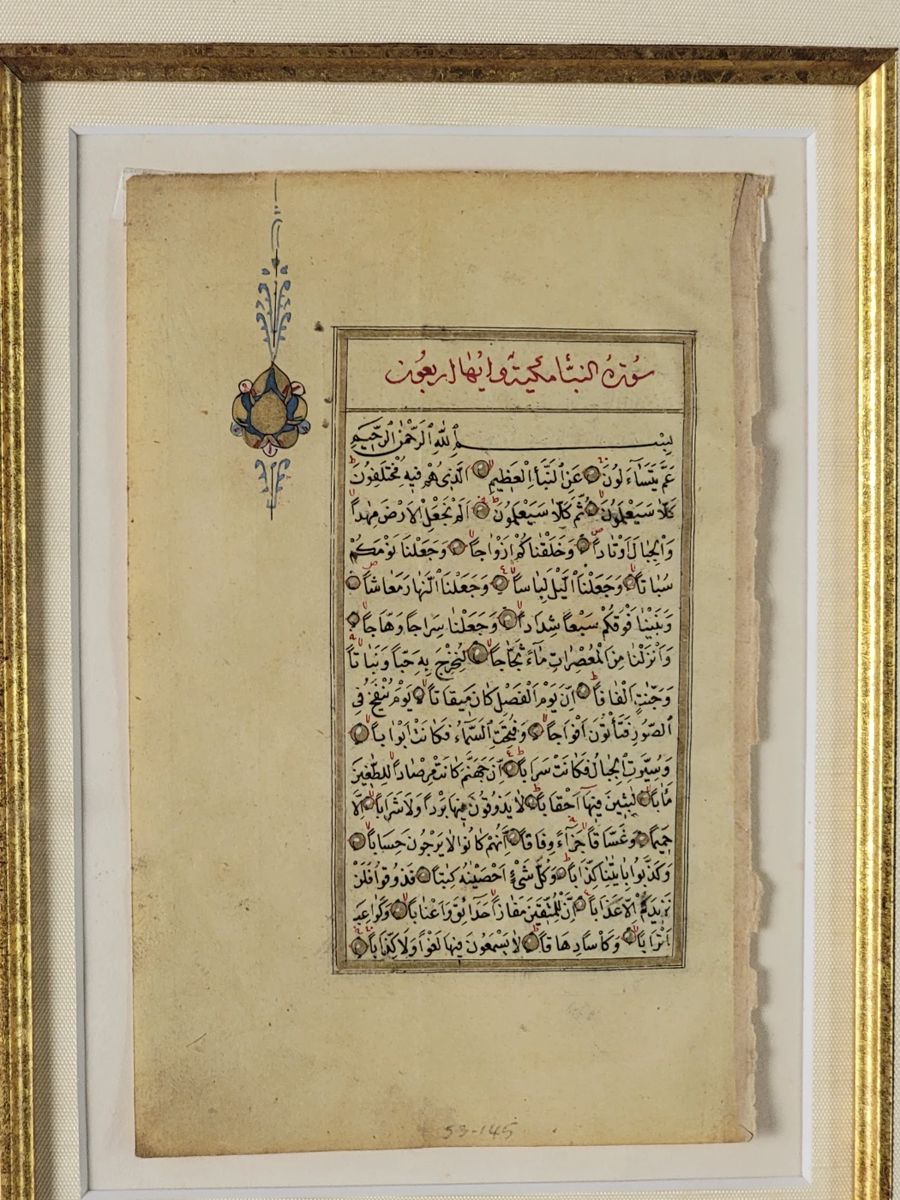 سُورَةُ النَّبَأ مكيّة وايٰتها اربعون
بِسْمِ ٱللّٰهِ ٱلرَّحْمٰنِ ٱلرَّحِيمِ
عَمَّ يَتَسَآءَلُونَ عَنِ ٱلنَّبَأِ ٱلْعَظِيمِ ٱلَّذِى هُمْ فِيهِ مُخْتَلِفُونَ
كَلَّا سَيَعْلَمُونَ ثُمَّ كَلَّا سَيَعْلَمُونَ اَلَمْ نَجْعَلِ ٱلْاَرْضَ مِهٰداً
وَٱلْجِبَالَ اَوْتَاداً وَخَلَقْنَاكُمْ اَزْوَاجاً وَجَعَلْنَا نَوْمَكُمْ
سُبَاتاً وَجَعَلْنَا ٱلَّيْلَ لِبَاساً وَجَعَلْنَا ٱلنَّهَارَ مَعَاشاً
وَبَنَيْنَا فَوْقَكُمْ سَبْعاً شِدَاداً وَجَعَلْنَا سِرَاجاً وَهَّاجاً
وَاَنْزَلْنَا مِنَ ٱلْمُعْصِرَاتِ مَاءً ثَجَّاجاً لِنُخْرِجَ بِهِ حَبّاً وَنَبَاتاً
وَجَنّٰتٍ اَلْفَافاً اِنَّ يَوْمَ ٱلْفَصْلِ كَانَ مِيقَاتاً يَوْمَ يُنْفَخُ فِى
ٱلصُّورِ فَتَأْتُونَ اَفْوَاجاً وَفُتِحَتِ ٱلسَّمَآءُ فَكَانَتْ اَبْوَاباً
وَسُيِّرَتِ ٱلْجِبَالُ فَكَانَتْ سَرَاباً اِنَّ جَهَنَّمَ كَانَتْ مِرْصَاداً لِلطّٰغِينَ
مَاٰباً لٰبِثِينَ فِيهَآ اَحْقَاباً لَا يَذُوقُونَ فِيهَا بَرْداً وَلَا شَرَاباً اِلَّا
حَمِيماً وَغَسَّاقاً جَزَآءً وِفَاقاً اِنَّهُمْ كَانُوا لَا يَرْجُونَ حِسَاباً
وَكَذَّبُوا بِاٰيٰتِنَا كِذَّاباً وَكُلَّ شَىْءٍ اَحْصَيْنٰهُ كِتٰباً فَذُوقُوا فَلَنْ
نَزِيدَكُمْ اِلَّا عَذَاباً اِنَّ لِلْمُتَّقِينَ مَفَازاً حَدَائِقَ وَاَعْنَاباً وَكَوَاعِبَ
اَتْرَاباً وَكَأْساً دِهَاقاً لَا يَسْمَعُونَ فِيهَا لَغْواً وَلَا كِذَّاباً
53-145